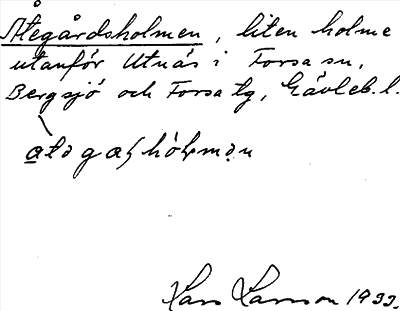 Åtegårdsholmen, liten holme
utanför Utnäs i Forsa sn,
Bergsjö och Forsa tg, Gävleb. l.
Hans Larsson 1933.